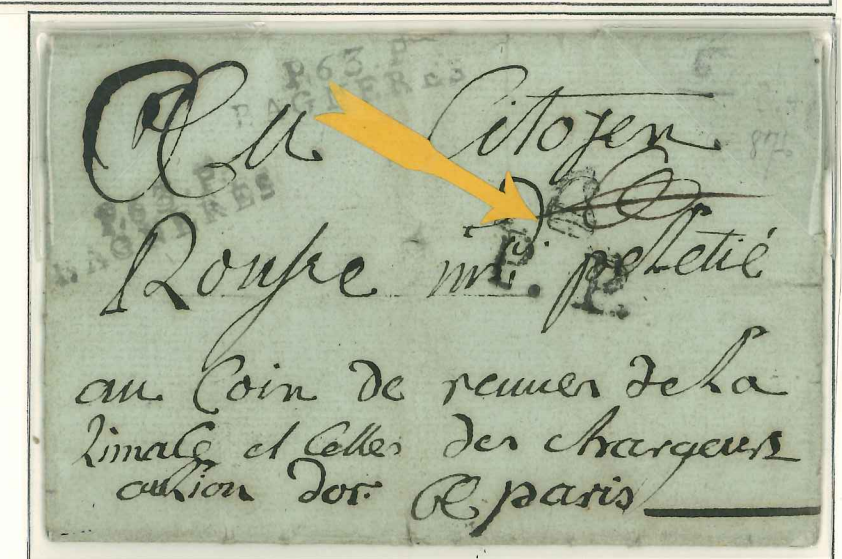 P.63.P.
BAGNERES
P.63.P.
BAGNERES
Au Citoyen
875
P. P.
Rousse md. pelletié
au Coin de renner de La
et Celles der chargeurs
au Lion Dor. A paris